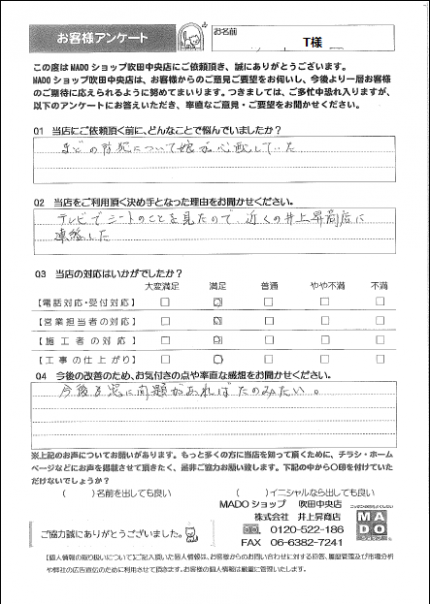 お客様アンケート
お名前
T様
この度はMADOショップ吹田中央店にご依頼頂き、誠にありがとうございます。
MADOショップ吹田中央店は、お客様からのご意見ご要望をお伺いし、今後より一層お客様
のご期待に応えられるように努めてまいります。つきましては、ご多忙中恐れ入りますが、
以下のアンケートにお答えいただき、率直なご意見・ご要望をお聞かせください。
01 当店にご依頼頂く前に、どんなことで悩んでいましたか?
まどの防犯について娘が心配していた
02 当店をご利用頂く決め手となった理由をお聞かせください。
テレビでシートのことを見たので、近くの井上昇商店に
連絡した
03 当店の対応はいかがでしたか?
大変満足 満足 普通 やや不満 不満
【電話対応・受付対応】 □ ☑ □ □ □
【営業担当者の対応】 □ ☑ □ □ □
【施工者の対応】 □ ☑ □ □ □
【工事の仕上がり】 □ ☑ □ □ □
04 今後の改善のため、お気付きの点や率直な感想をお聞かせください。
今後も窓に問題があればたのみたい。
※上記のお声についてお願いがあります。もっと多くの方に当店を知って頂くために、チラシ・ホーム
ページなどにお声を掲載させて頂きたく、是非ご協力お願い致します。下記の中から〇印を付けていた
だけないでしょうか?
( )名前を出しても良い ( )イニシャルなら出しても良い
MADOショップ 吹田中央店
株式会社 井上昇商店
0120-522-186
FAX 06-6382-7241
MADO
ショップ
ご協力誠にありがとうございました。
【個人情報の取り扱いについて】ご記入頂いた個人情報は、お客様からのお問い合わせに対する回答、履歴管理及び市場分析
や弊社の広告宣伝のために利用させて頂きます。お客様の個人情報は厳重に管理いたします。